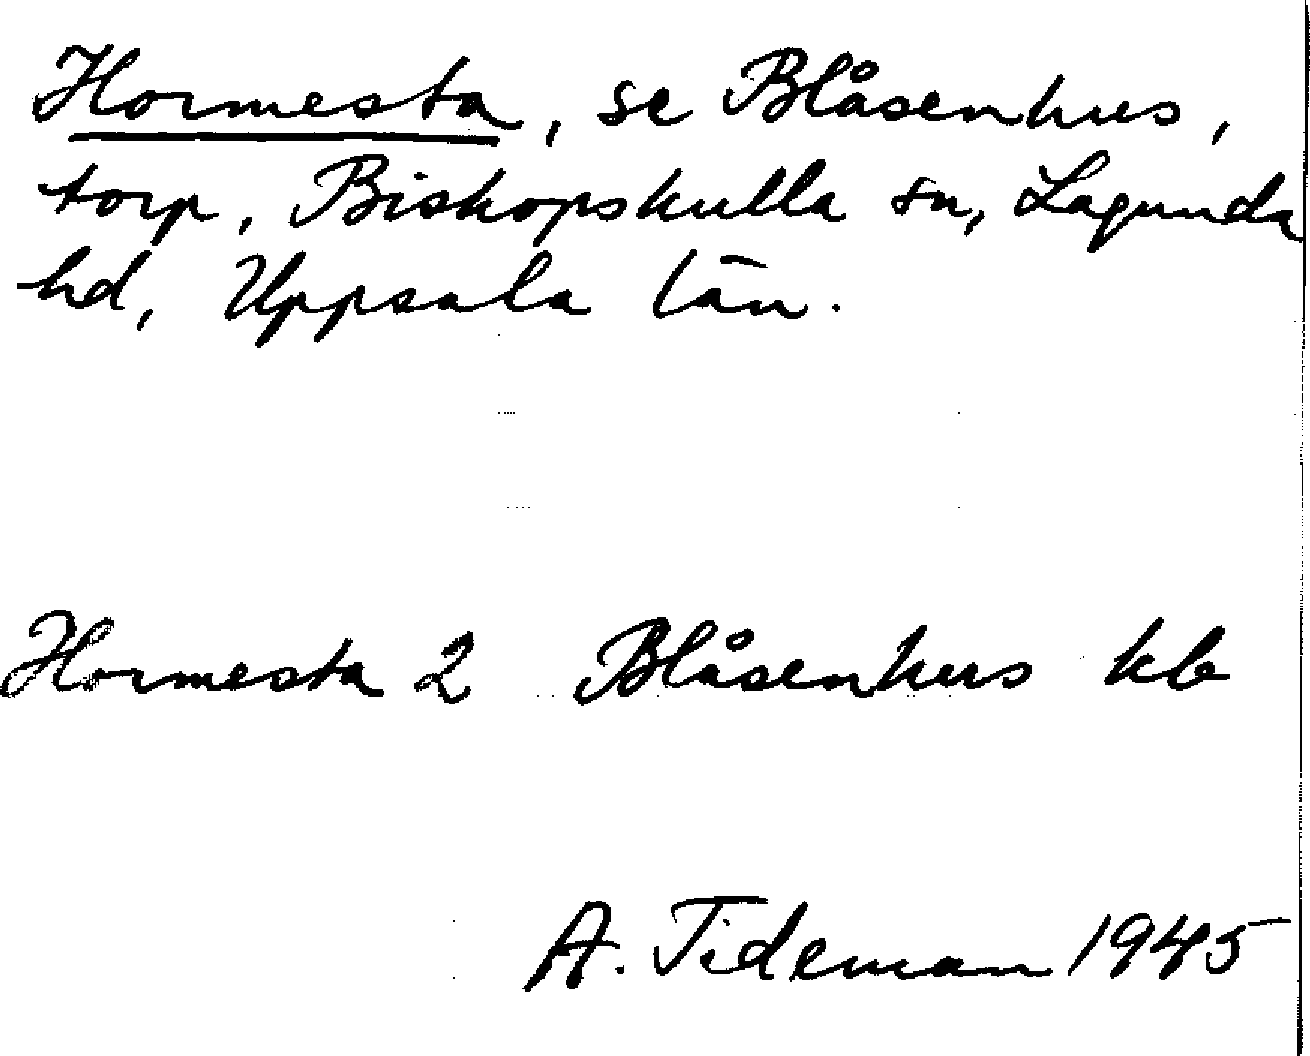 Hormesta, se Blåsenhus,
torp, Biskopskulla sn, Lagunda
hd, Uppsala län.
Hormesta 2 Blåsenhus kb
A. Tideman 1945